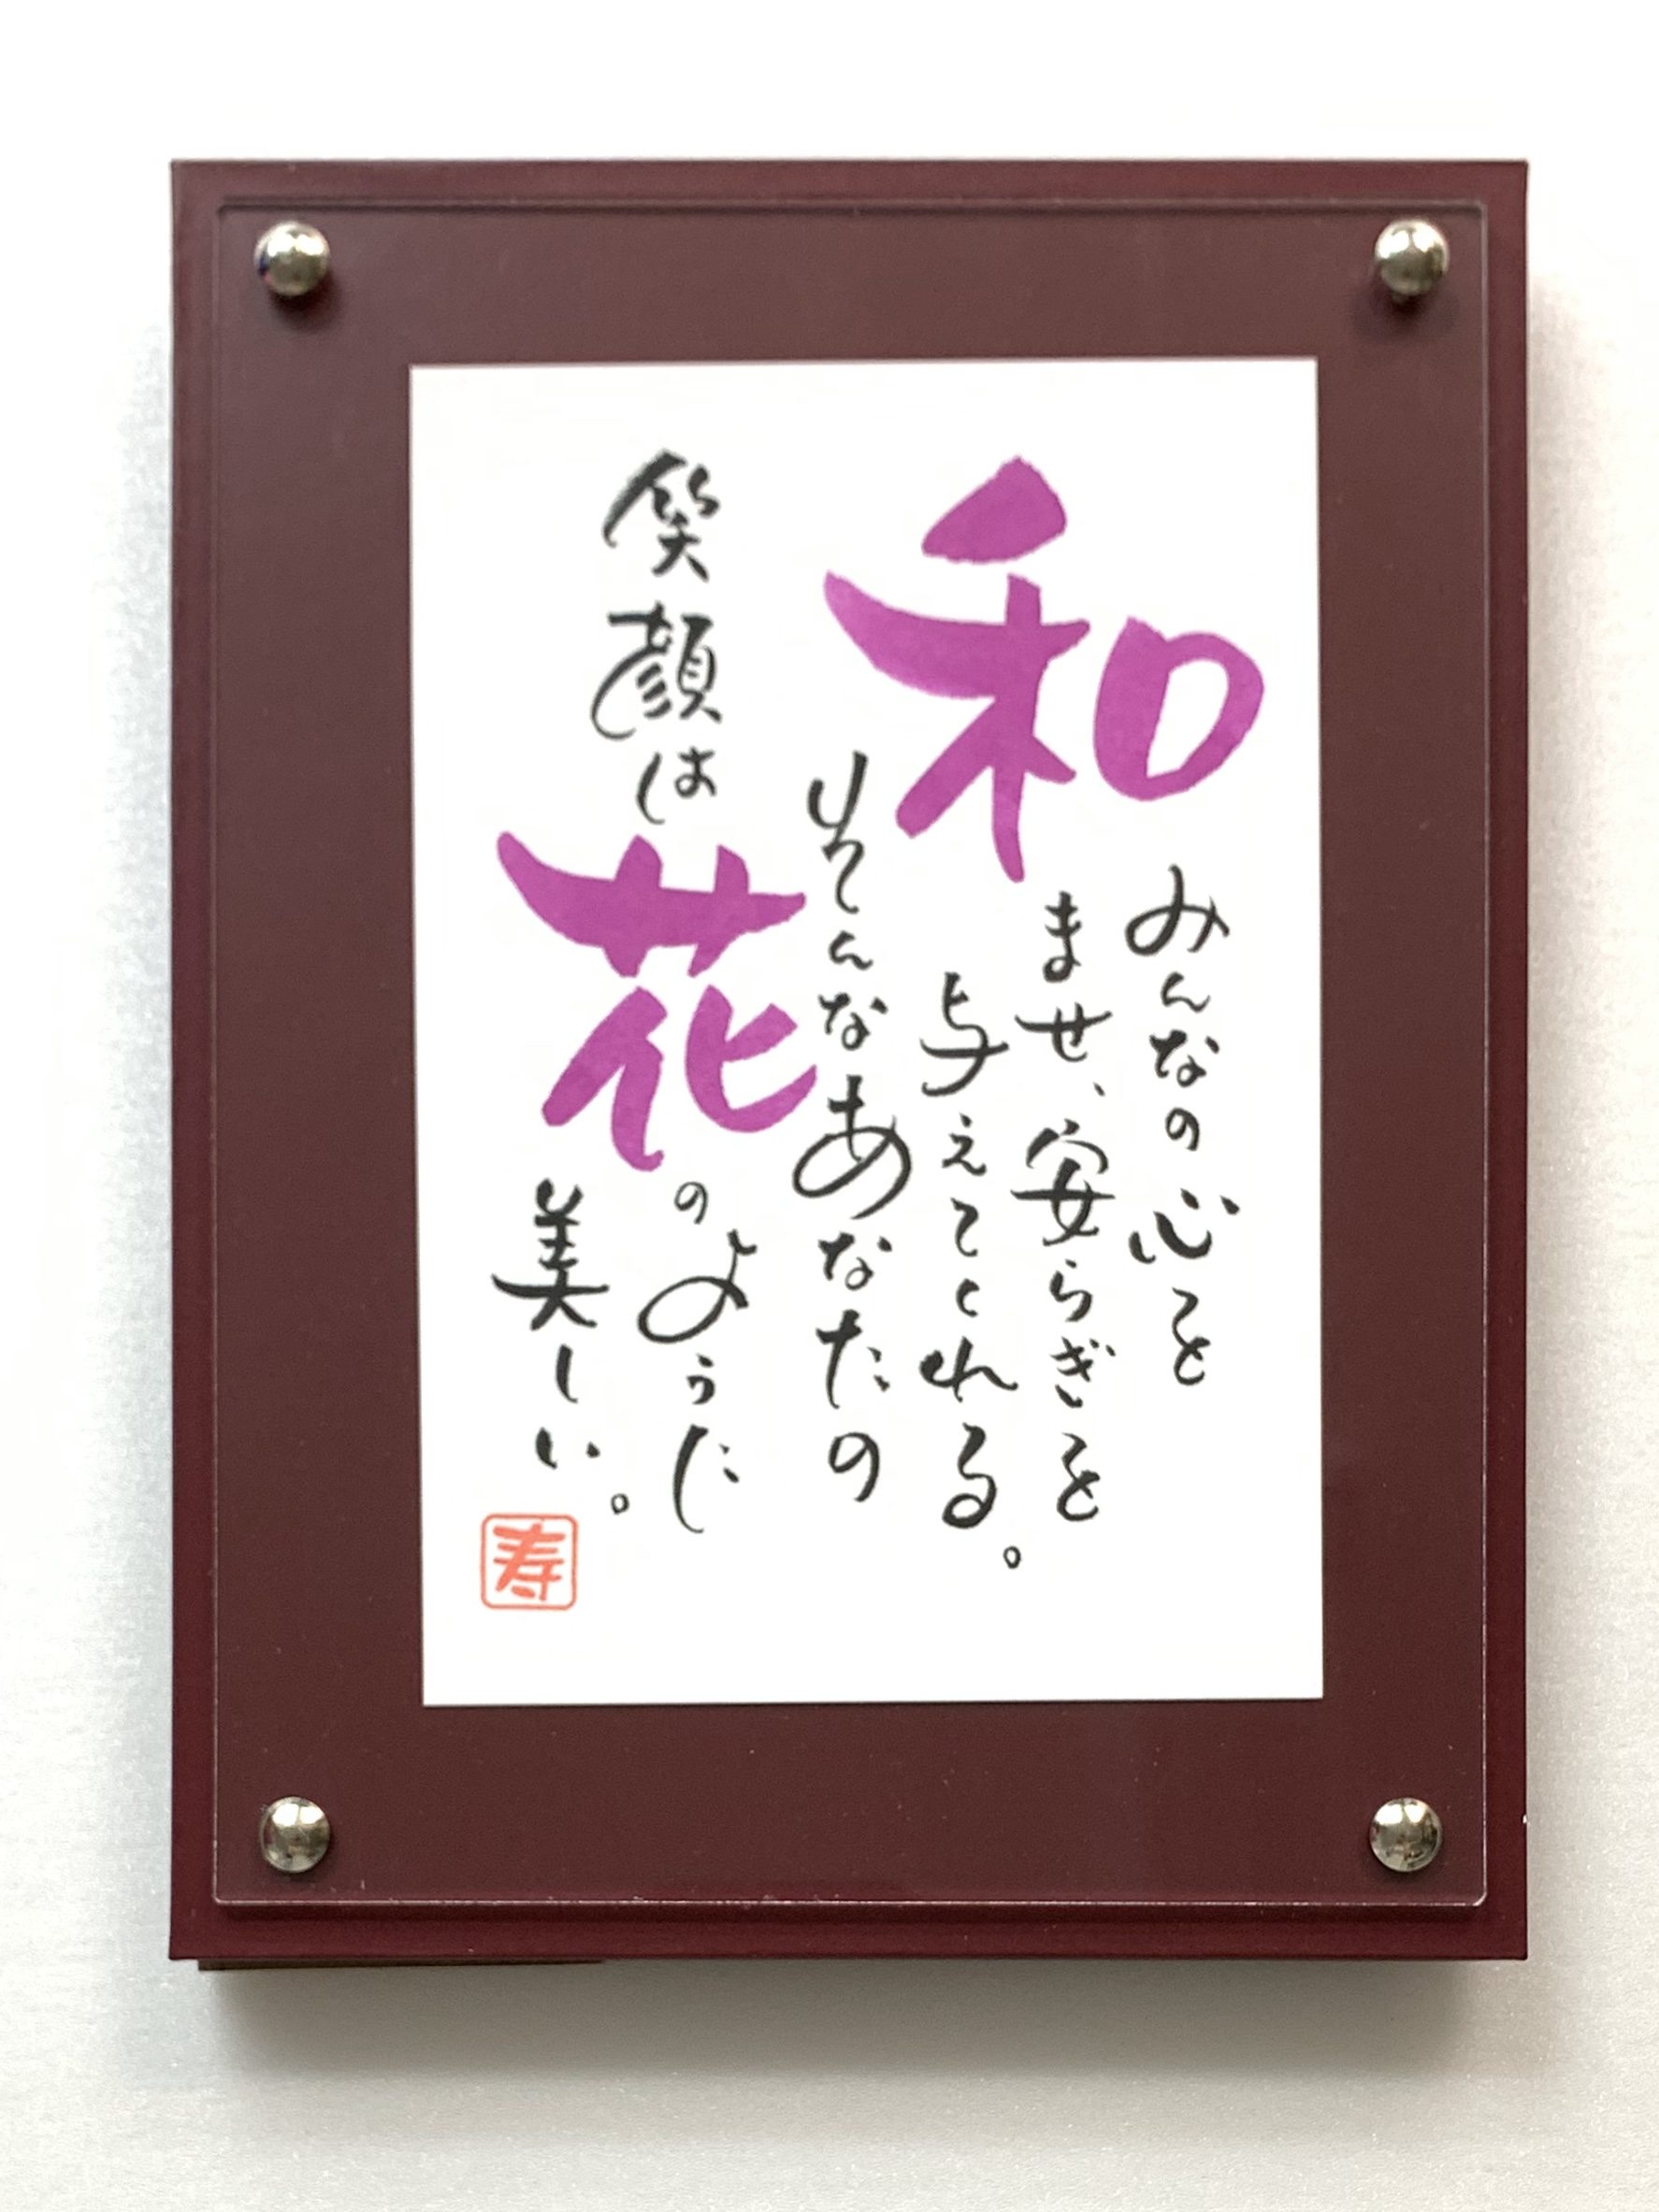 みんなの心を
和ませ、安らぎを
与えてくれる。
そんなあなたの
笑顔は
花のように
美しい。
寿